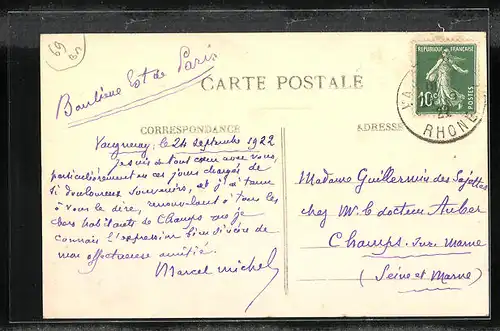 69
Banlieue Est de Paris
CARTE POSTALE
REPUBLIQUE FRANÇAISE
10c
POSTES
VA
RHONE
CORRESPONDANCE
ADRESSE
Vaugneray, le 24 septembre 1922
je suis de tout cœur avec vous,
particulièrement en ces jours chargés de
si douloureux souvenirs, et j'ai tenu
à vous le dire, renouvelant à tous les
chers habitants de Champs que je
connais l'expression bien sincère de
mon affectueuse amitié.
Marcel Michel
Madame Guillermin des
chez Mr le docteur Auber
Champs sur Marne
(Seine et Marne)